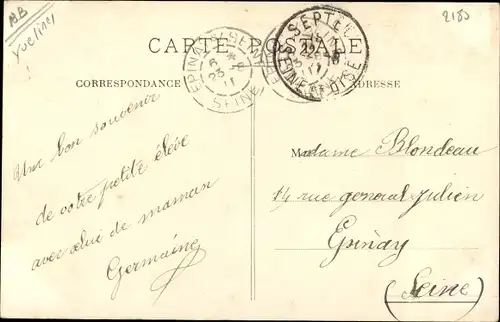 AB
Yvelines
2183
CARTE POSTALE
EPINAY S/ SEINE
23 - 8
11
SEINE
SEPTEUIL
SEINE ET OISE
CORRESPONDANCE
ADRESSE
Un bon souvenir
de votre petite élève
avec celui de maman
Germaine
Madame Blondeau
14 rue general Julien
Epinay
(Seine)